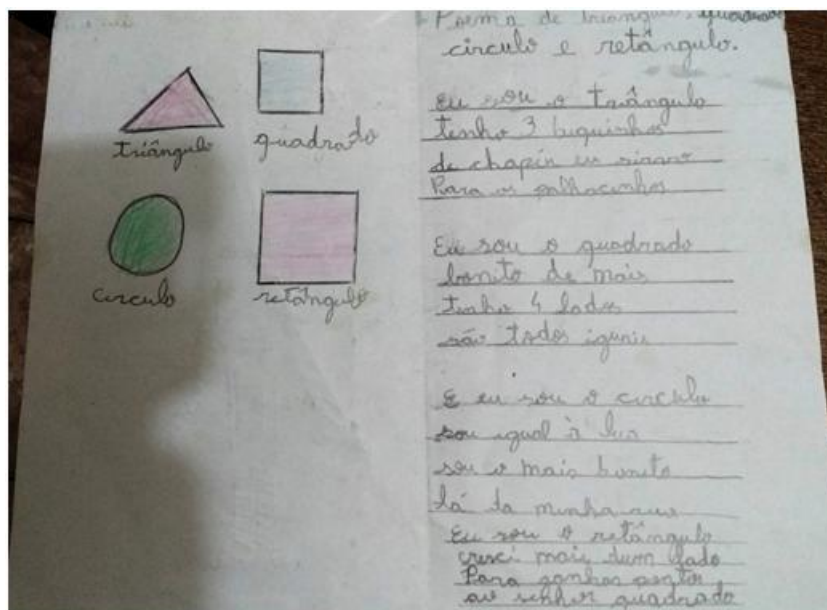 triângulo
quadrado
circulo
retângulo
Poema de triangulo, quadrado
circulo e retângulo.
Eu sou o triângulo
tenho 3 biquinhos
de chapín eu sirvo
Para os palhacinhos
Eu sou o quadrado
bonito de mais
tenho 4 lados
são todos iguais
E eu sou o circulo
sou igual à lua
sou o mais bonito
lá da minha rua
Eu sou o retângulo
cresci mais dum lado
Para ganhar pontos
ao senhor quadrado